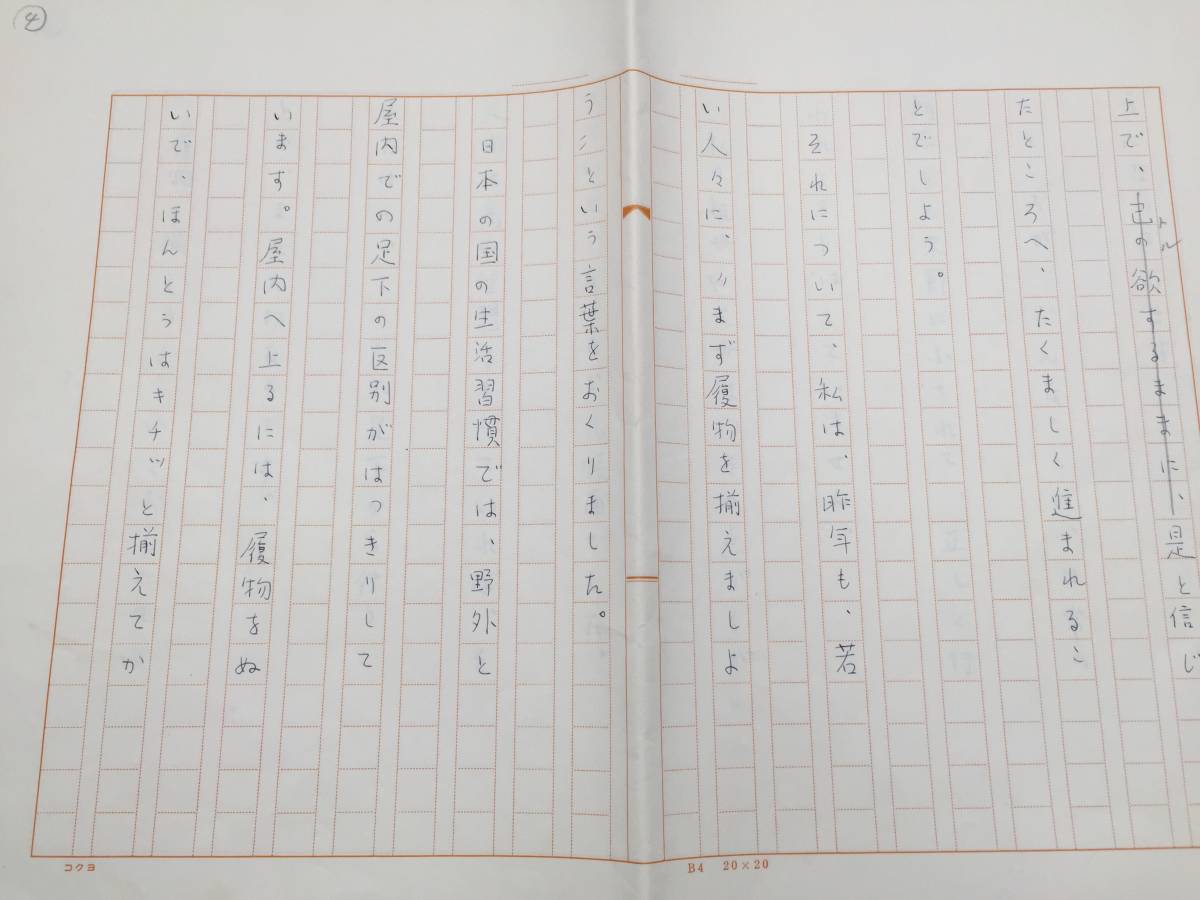 ④
上で、志の欲するままに、是と信じ
トル
たところへ、たくましく進まれるこ
とでしよう。
それについて、私は、昨年も、若
い人々に、〃まず履物を揃えましよ
う〃という言葉をおくりました。
日本の国の生活習慣では、野外と
屋内での足下の区別がはつきりして
います。屋内へ上るには、履物をぬ
いで、ほんとうはキチッと揃えてか
コクヨ
B4 20×20